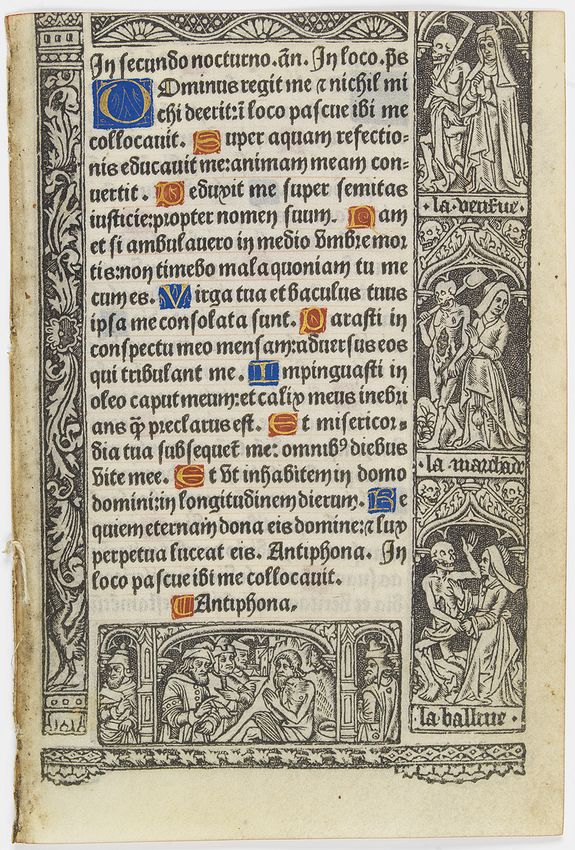 In secundo nocturno. añ. In loco. p̄s
Dominus regit me ⁊ nichil mi
chi deerit: ĩ loco pascue ibi me
collocauit. Super aquam refectio-
nis educauit me: animam meam con-
uertit. Deduxit me super semitas
iusticie: propter nomen suum. Nam
et si ambulauero in medio vmbre mor
tis: non timebo mala quoniam tu me
cum es. Virga tua et baculus tuus
ipsa me consolata sunt. Parasti in
conspectu meo mensam: aduersus eos
qui tribulant me. Impinguasti in
oleo caput meum: et calix meus inebri
ans q̃ preclarus est. Et misericor-
dia tua subsequet̃ me: omnibꝰ diebus
vite mee. Et vt inhabitem in domo
domini: in longitudinem dierum. Re
quiem eternam dona eis domine: ⁊ lux
perpetua luceat eis. Antiphona. In
loco pascue ibi me collocauit.
Antiphona.
·la vefue·
·la marchāde
·la balliue·